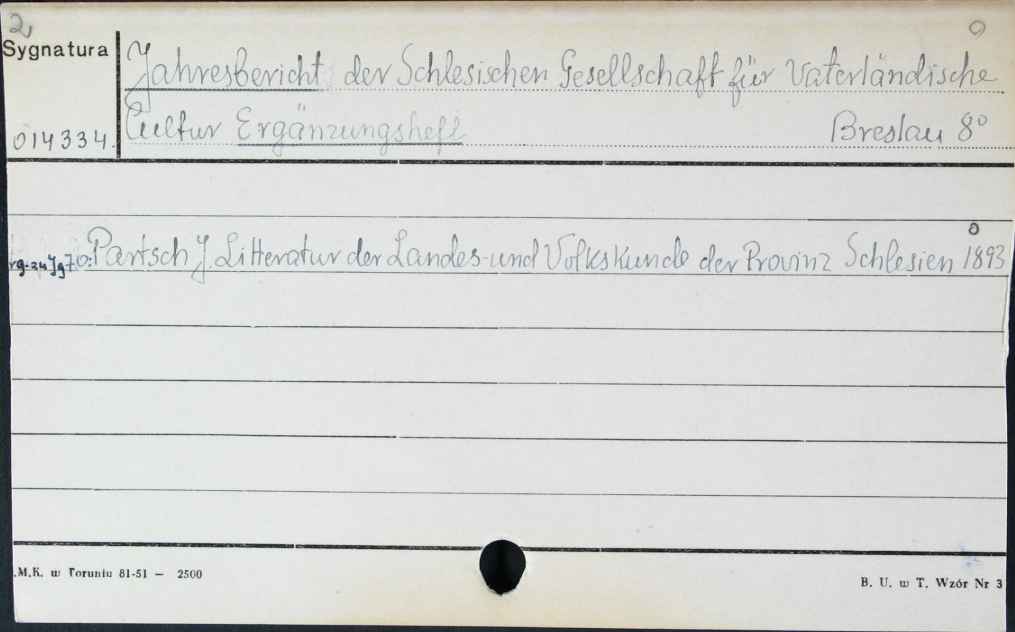 2,
Sygnatura
014334.
Jahresbericht der Schlesischen Gesellschaft für Vaterländische
Cultur Ergänzungsheft Breslau 8°
rg-zu Jg 70: Partsch J. Litteratur der Landes- und Volkskunde der Provinz Schlesien 1893
.M.K. w Toruniu 81-51 — 2500
B. U. w T. Wzór Nr 3